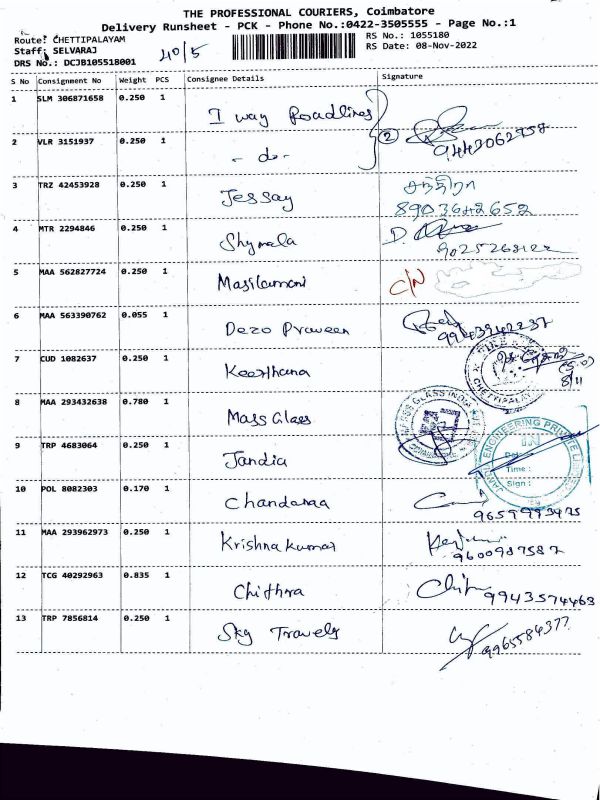 THE PROFESSIONAL COURIERS, Coimbatore
Delivery Runsheet - PCK - Phone No.:0422-3505555 - Page No.:1
Route: CHETTIPALAYAM RS No.: 1055180
Staff: SELVARAJ 40/5 RS Date: 08-Nov-2022
DRS No.: DCJB105518001
S No Consignment No Weight PCS Consignee Details Signature
1 SLM 306871658 0.250 1 I way Roadlines
2 VLR 3151937 0.250 1 - do - 2 9443062958
3 TRZ 42453928 0.250 1 Jessay சந்திரா
8903642652
4 MTR 2294846 0.250 1 Shymala D.
5 MAA 562827724 0.250 1 Masilamani C/N
6 MAA 563390762 0.055 1 Dezo Praveen 9943942237
7 CUD 1082637 0.250 1 Keerthana CHETTIPALAY 8/11
8 MAA 293432638 0.780 1 Mass Glass GLASS INDIA
9 TRP 4683064 0.250 1 Jandia ENGINEERING PRIVATE
Time :
Sign :
10 POL 8082303 0.170 1 Chandanaa 9659993425
11 MAA 293962973 0.250 1 Krishna kumar 9600987587
12 TCG 40292963 0.835 1 Chithra 9943574463
13 TRP 7856814 0.250 1 Sky Travels 9965584377